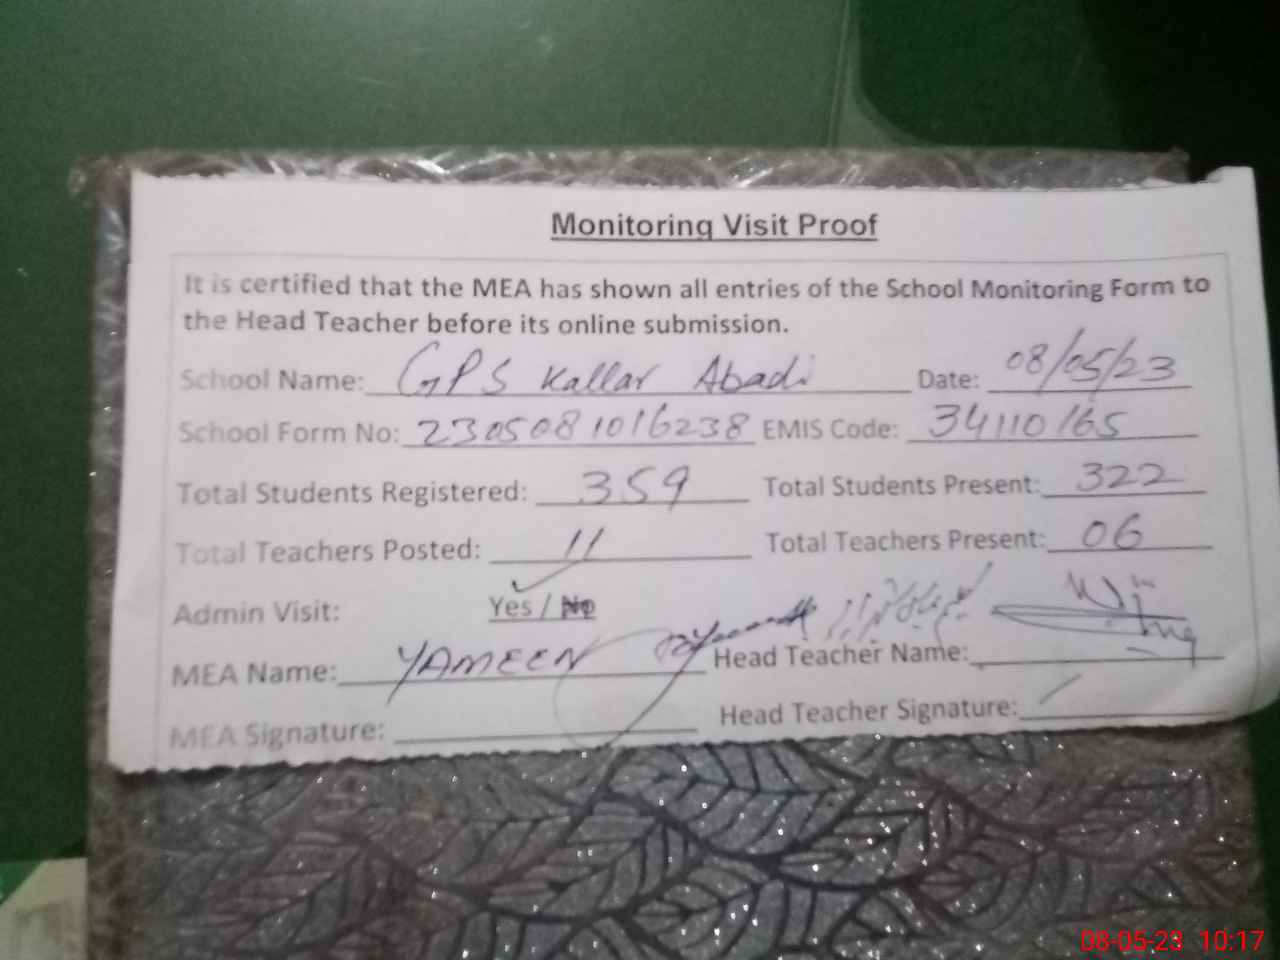 Monitoring Visit Proof
It is certified that the MEA has shown all entries of the School Monitoring Form to
the Head Teacher before its online submission.
School Name: GPS Kallar Abadi Date: 08/05/23
School Form No: 2305081016238 EMIS Code: 34110165
Total Students Registered: 359 Total Students Present: 322
Total Teachers Posted: 11 Total Teachers Present: 06
Admin Visit: Yes / No
MEA Name: YAMEEN Head Teacher Name:
MEA Signature: Head Teacher Signature:
08-05-23 10:17